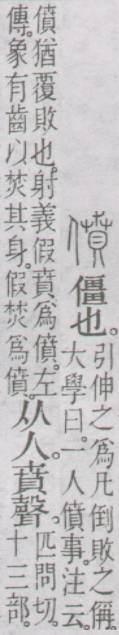 僨
僵也。
引伸之爲凡倒敗之偁。
大學曰。一人僨事。注云。
僨猶覆敗也。射義假賁爲僨。左
傳。象有齒以焚其身。假焚爲僨。
从人賁聲。
匹問切。
十三部。